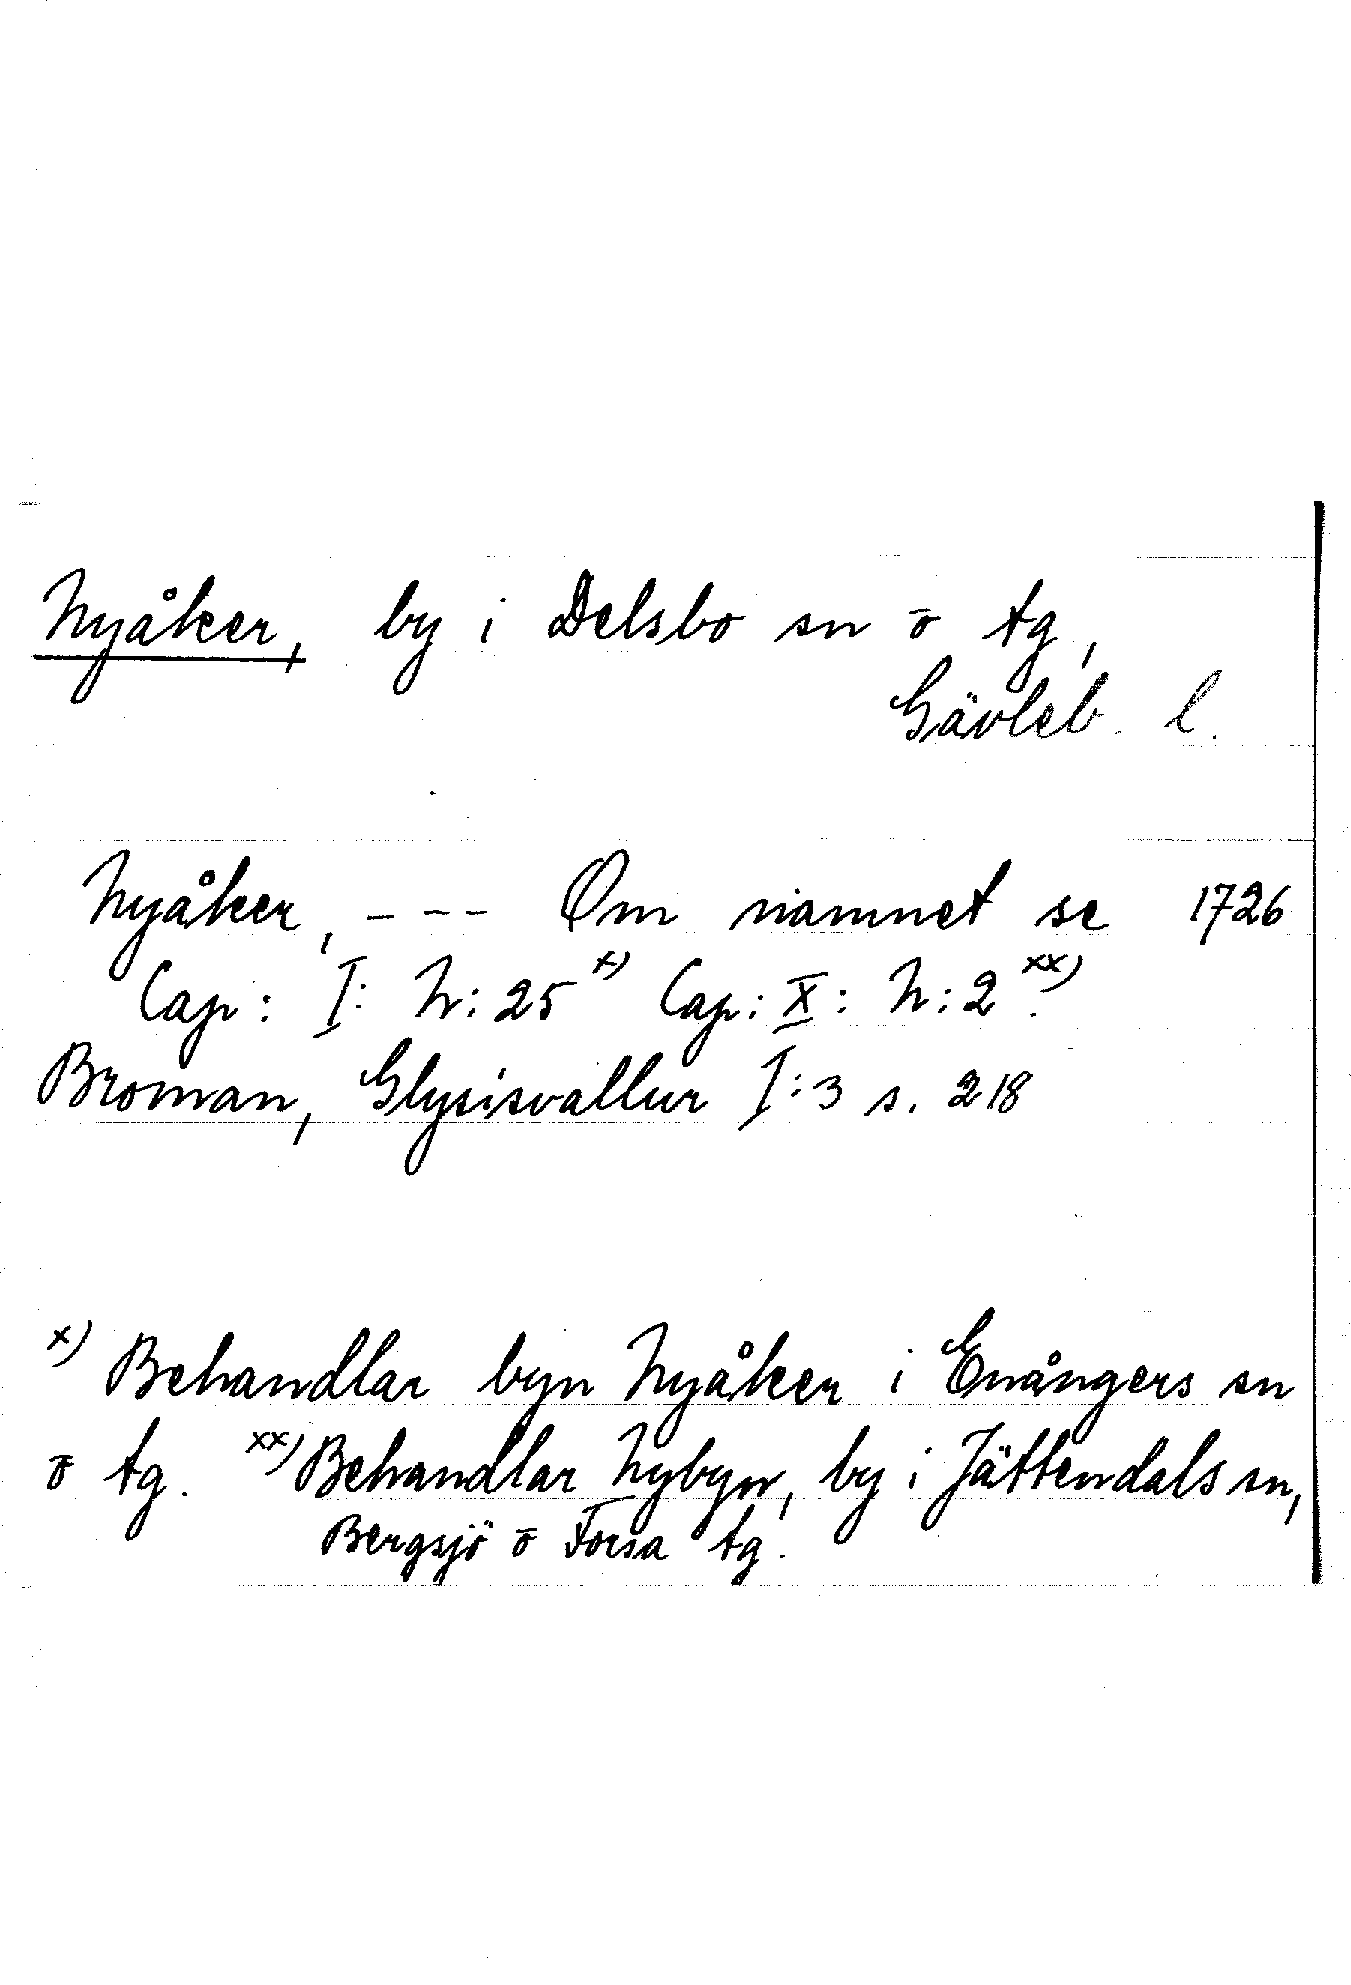 Nyåker, by i Delsbo sn o tg,
Gävleb. l.
Nyåker, --- Om namnet se 1726
Cap: I: N: 25 x) Cap: X: N: 2 xx).
Broman, Glysisvallur I:3 s. 218
x) Behandlar byn Nyåker i Enångers sn
o tg. xx) Behandlar Nybyn, by i Jättendals sn,
Bergsjö o Forsa tg.